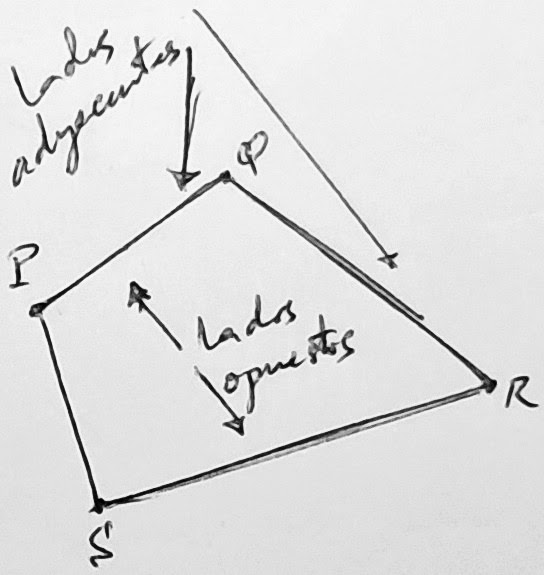 Lados
adyacentes
Q
P
Lados
opuestos
R
S